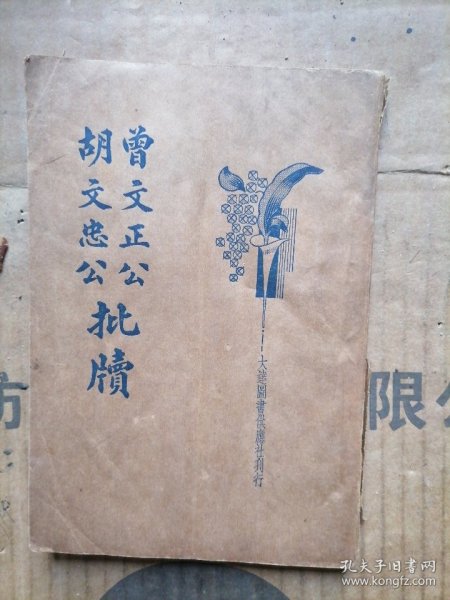 曾文正公
胡文忠公
批牘
大達圖書供應社刊行
限公
孔夫子旧书网
www.kongfz.com